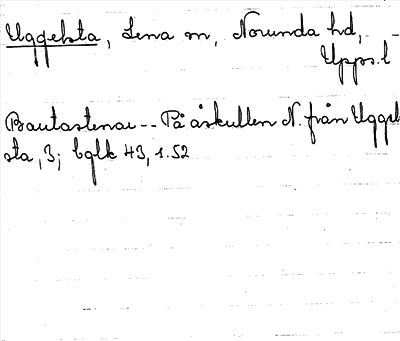 Uggelsta, Lena sn, Norunda hd,
Upps. l
Bautastenar -- På åskullen N. från Uggel
sta, 3; bglk 43, s. 52